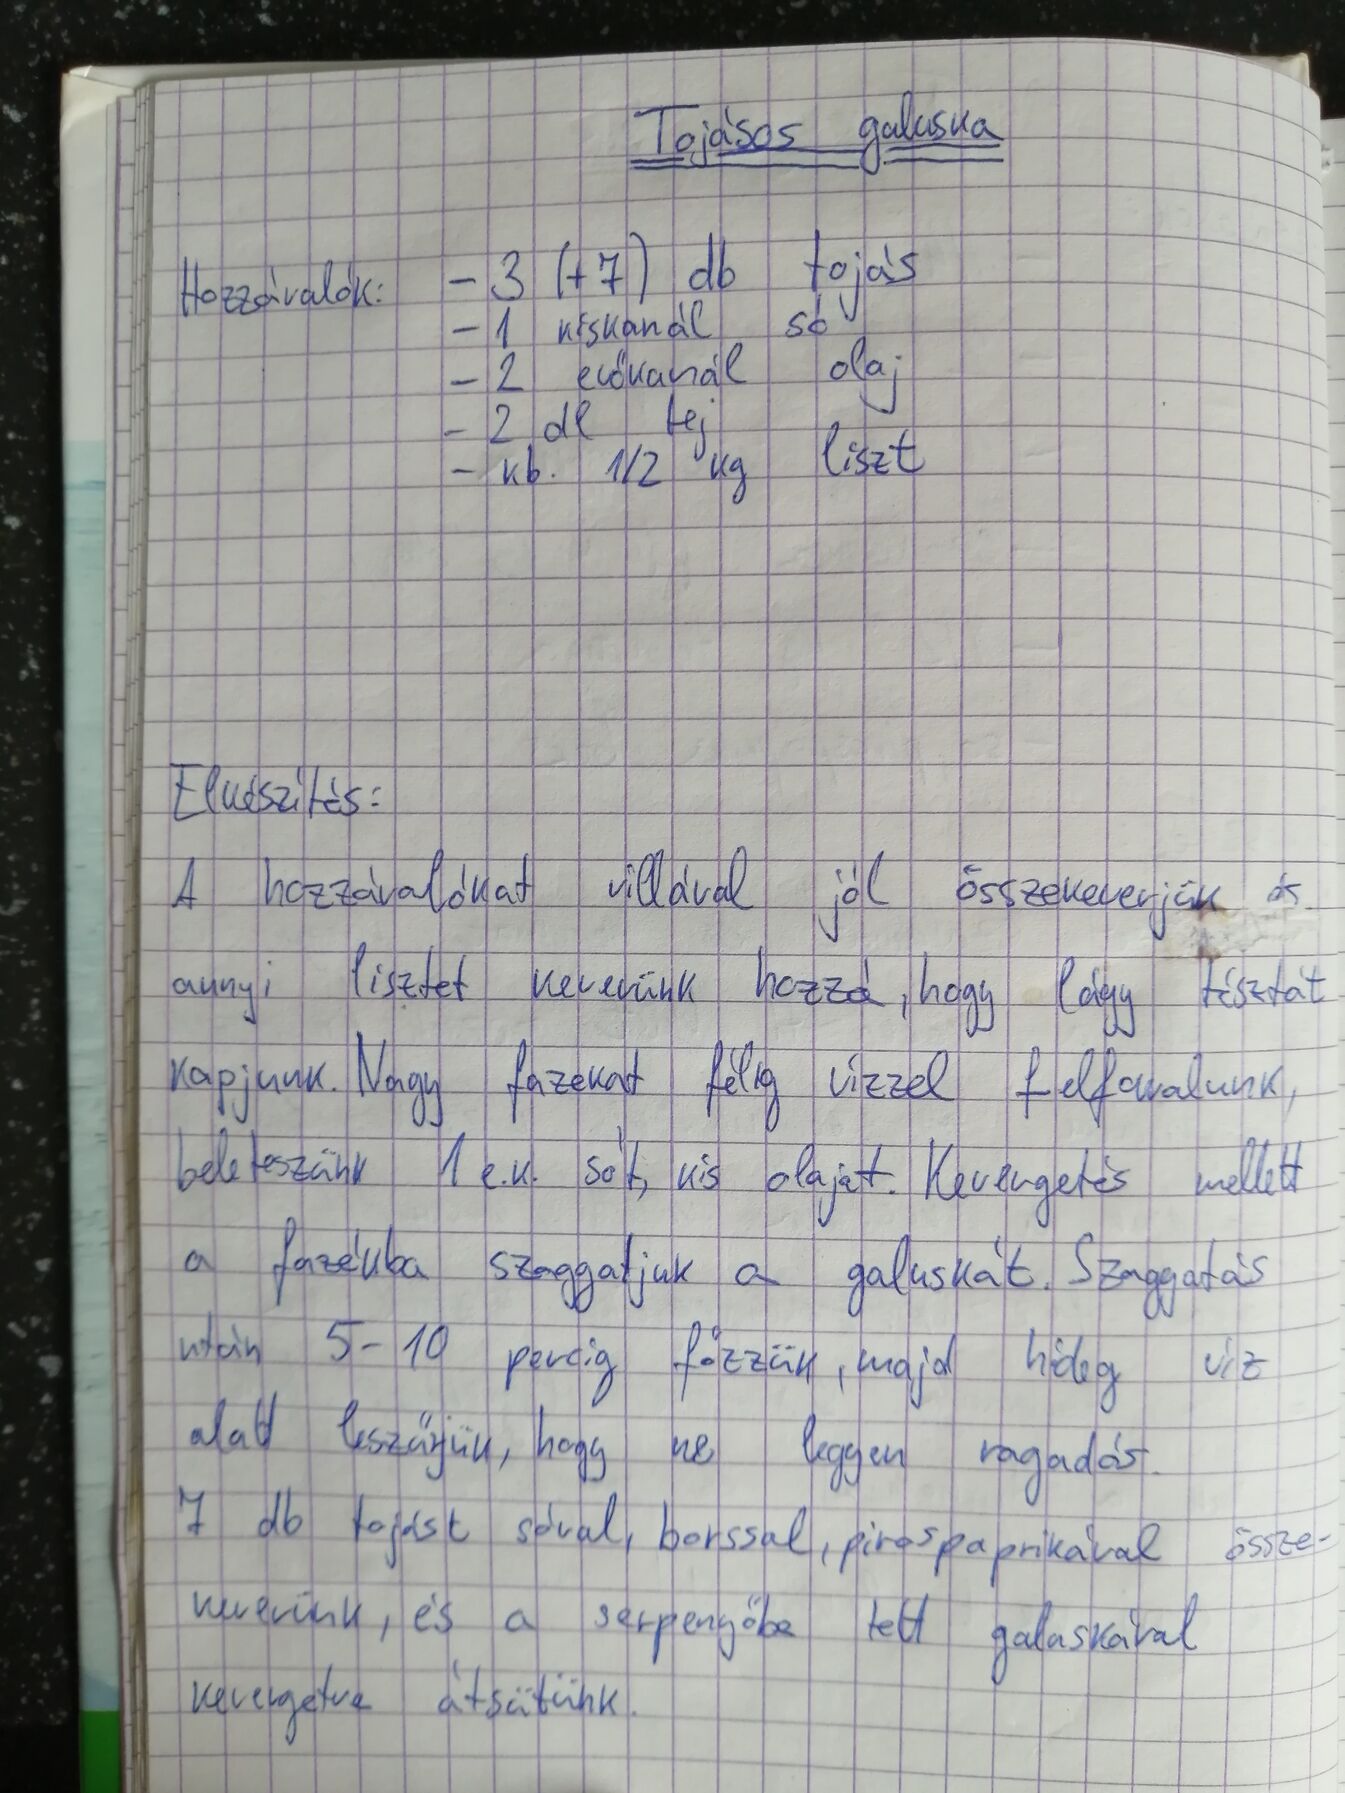 Tojásos galuska
Hozzávalók: - 3 (+7) db tojás
- 1 kiskanál só
- 2 evőkanál olaj
- 2 dl tej
- kb. 1/2 kg liszt
Elkészítés:
A hozzávalókat villával jól összekeverjük és
annyi lisztet keverünk hozzá, hogy lágy tésztát
kapjunk. Nagy fazekat félig vízzel felforralunk,
beleteszünk 1 e.k. sót, kis olajat. Kevergetés mellett
a fazékba szaggatjuk a galuskát. Szaggatás
után 5-10 percig főzzük, majd hideg víz
alatt leszűrjük, hogy ne legyen ragadós.
7 db tojást sóval, borssal, pirospaprikával össze-
keverünk, és a serpenyőbe tett galuskával
kevergetve átsütünk.